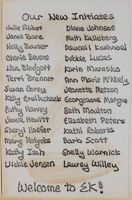 Our New Initiates
Julie Abbor
Janet Bane
Holly Baxter
Connie Bauers
Lisa Blodgett
Terri Brenner
Susan Corey
Kelly
Cathy Harvey
Janie Hewitt
Sheryl Hoefer
Mary Holyoke
Kathy Ivosh
Vickie Jensen
Diane Johnson
Ruth Kelleberg
Daunell Kushnoel
Debbie Lucas
Karin Maraska
Ann Marie McNeely
Jeanette Metzen
Georgeanne Morgan
Beth Moulton
Elizabeth Peters
Kathi Roberts
Barb Scott
Shelly Warnick
Laurey Willey
Welcome to ΣK!